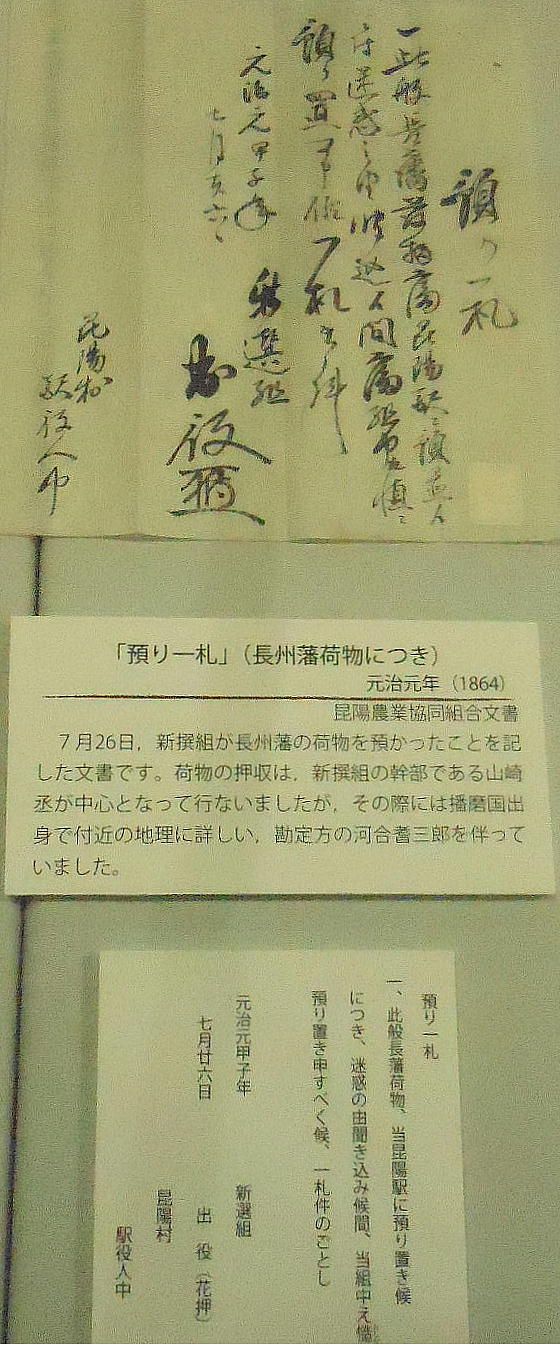 預り一札
元治元甲子年
新選組
出役
昆陽村
駅役人中
「預り一札」（長州藩荷物につき）
元治元年（1864）
昆陽農業協同組合文書
７月26日，新撰組が長州藩の荷物を預かったことを記
した文書です。荷物の押収は，新撰組の幹部である山崎
丞が中心となって行ないましたが，その際には播磨国出
身で付近の地理に詳しい，勘定方の河合耆三郎を伴って
いました。
預り一札
一、此般長藩荷物、当昆陽駅に預り置き候
につき、迷惑の由聞き込み候間、当組中え慥
預り置き申すべく候、一札件のごとし
元治元甲子年
七月廿六日
新選組
出　役（花押）
昆陽村
駅役人中